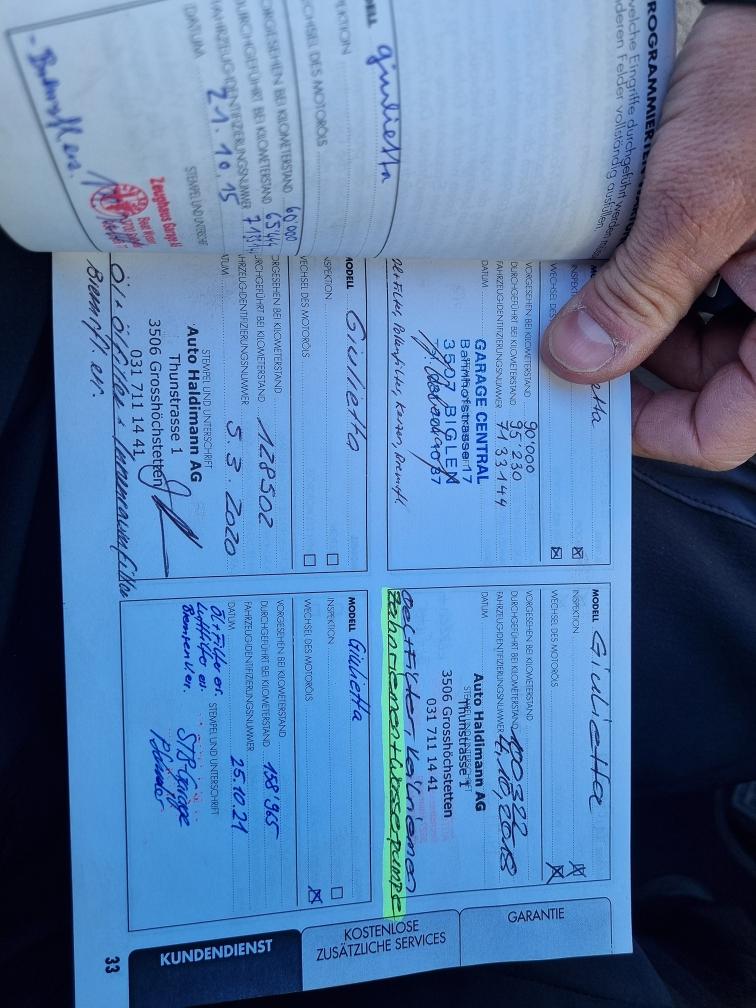 PROGRAMMIERTE
welche Eingriffe durchgeführt werden
anderen Felder vollständig ausfüllen
MODELL Giulietta
INSPEKTION
WECHSEL DES MOTORÖLS
VORGESEHEN BEI KILOMETERSTAND 60'000
DURCHGEFÜHRT BEI KILOMETERSTAND
FAHRZEUG-IDENTIFIZIERUNGSNUMMER
DATUM 21.10.15
STEMPEL UND UNTERSCHRIFT
Zeughaus Garage
VORGESEHEN BEI KILOMETERSTAND 90'000
DURCHGEFÜHRT BEI KILOMETERSTAND 95'230
FAHRZEUG-IDENTIFIZIERUNGSNUMMER 7133144
DATUM
GARAGE CENTRAL
Bahnhofstrasse 17
3507 BIGLEN
MODELL Giulietta
INSPEKTION
WECHSEL DES MOTORÖLS
VORGESEHEN BEI KILOMETERSTAND
DURCHGEFÜHRT BEI KILOMETERSTAND 100322
FAHRZEUG-IDENTIFIZIERUNGSNUMMER
DATUM
Auto Haldimann AG
Thunstrasse 1
3506 Grosshöchstetten
031 711 14 41
Oel+Filter, Keilriemen
Zahnriemen+Wasserpumpe
MODELL Giulietta
INSPEKTION
WECHSEL DES MOTORÖLS
VORGESEHEN BEI KILOMETERSTAND
DURCHGEFÜHRT BEI KILOMETERSTAND 128502
FAHRZEUG-IDENTIFIZIERUNGSNUMMER
DATUM 5.3.2020
STEMPEL UND UNTERSCHRIFT
Auto Haldimann AG
Thunstrasse 1
3506 Grosshöchstetten
031 711 14 41
Öl + Ölfilter + Innenraumfilter
Bremsfl. er.
MODELL Giulietta
INSPEKTION
WECHSEL DES MOTORÖLS
VORGESEHEN BEI KILOMETERSTAND
DURCHGEFÜHRT BEI KILOMETERSTAND 158'965
FAHRZEUG-IDENTIFIZIERUNGSNUMMER
DATUM 25.10.21
STEMPEL UND UNTERSCHRIFT
Öl+Filter er.
Luftfilter er.
GARANTIE
KOSTENLOSE
ZUSÄTZLICHE SERVICES
KUNDENDIENST
33